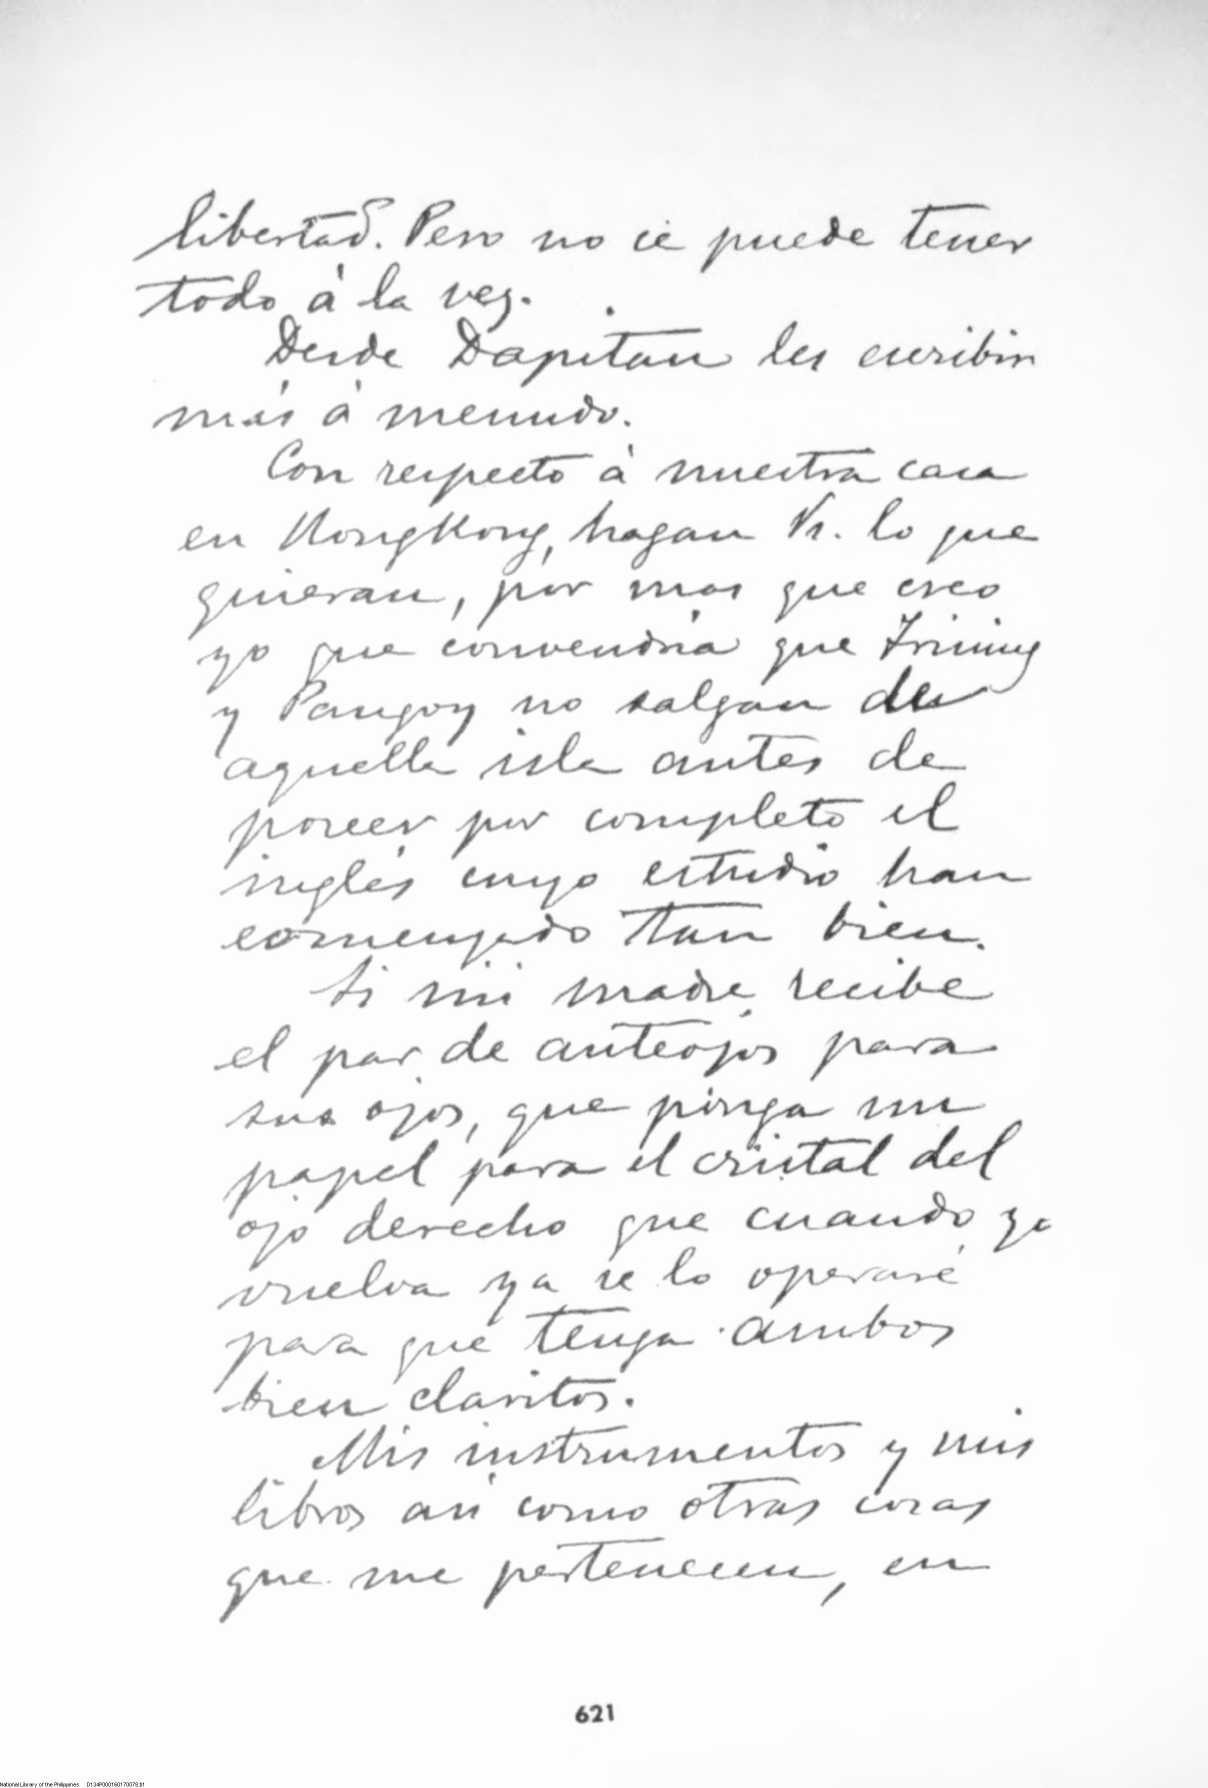 libertad. Pero no se puede tener
todo á la vez.
Desde Dapitan les escribiré
más á menudo.
Con respecto á nuestra casa
en HongKong, hagan Vs. lo que
quieran, por mas que creo
yo que convendría que Trining
y Pangoy no salgan de
aquella isla antes de
poseer por completo el
inglés cuyo estudio han
comenzado tan bien.
Si mi madre recibe
el par de anteojos para
sus ojos, que ponga un
papel para el cristal del
ojo derecho que cuando yo
vuelva ya se lo operaré
para que tenga ambos
bien claritos.
Mis instrumentos y mis
libros así como otras cosas
que me pertenecen, en
621
National Library of the Philippines